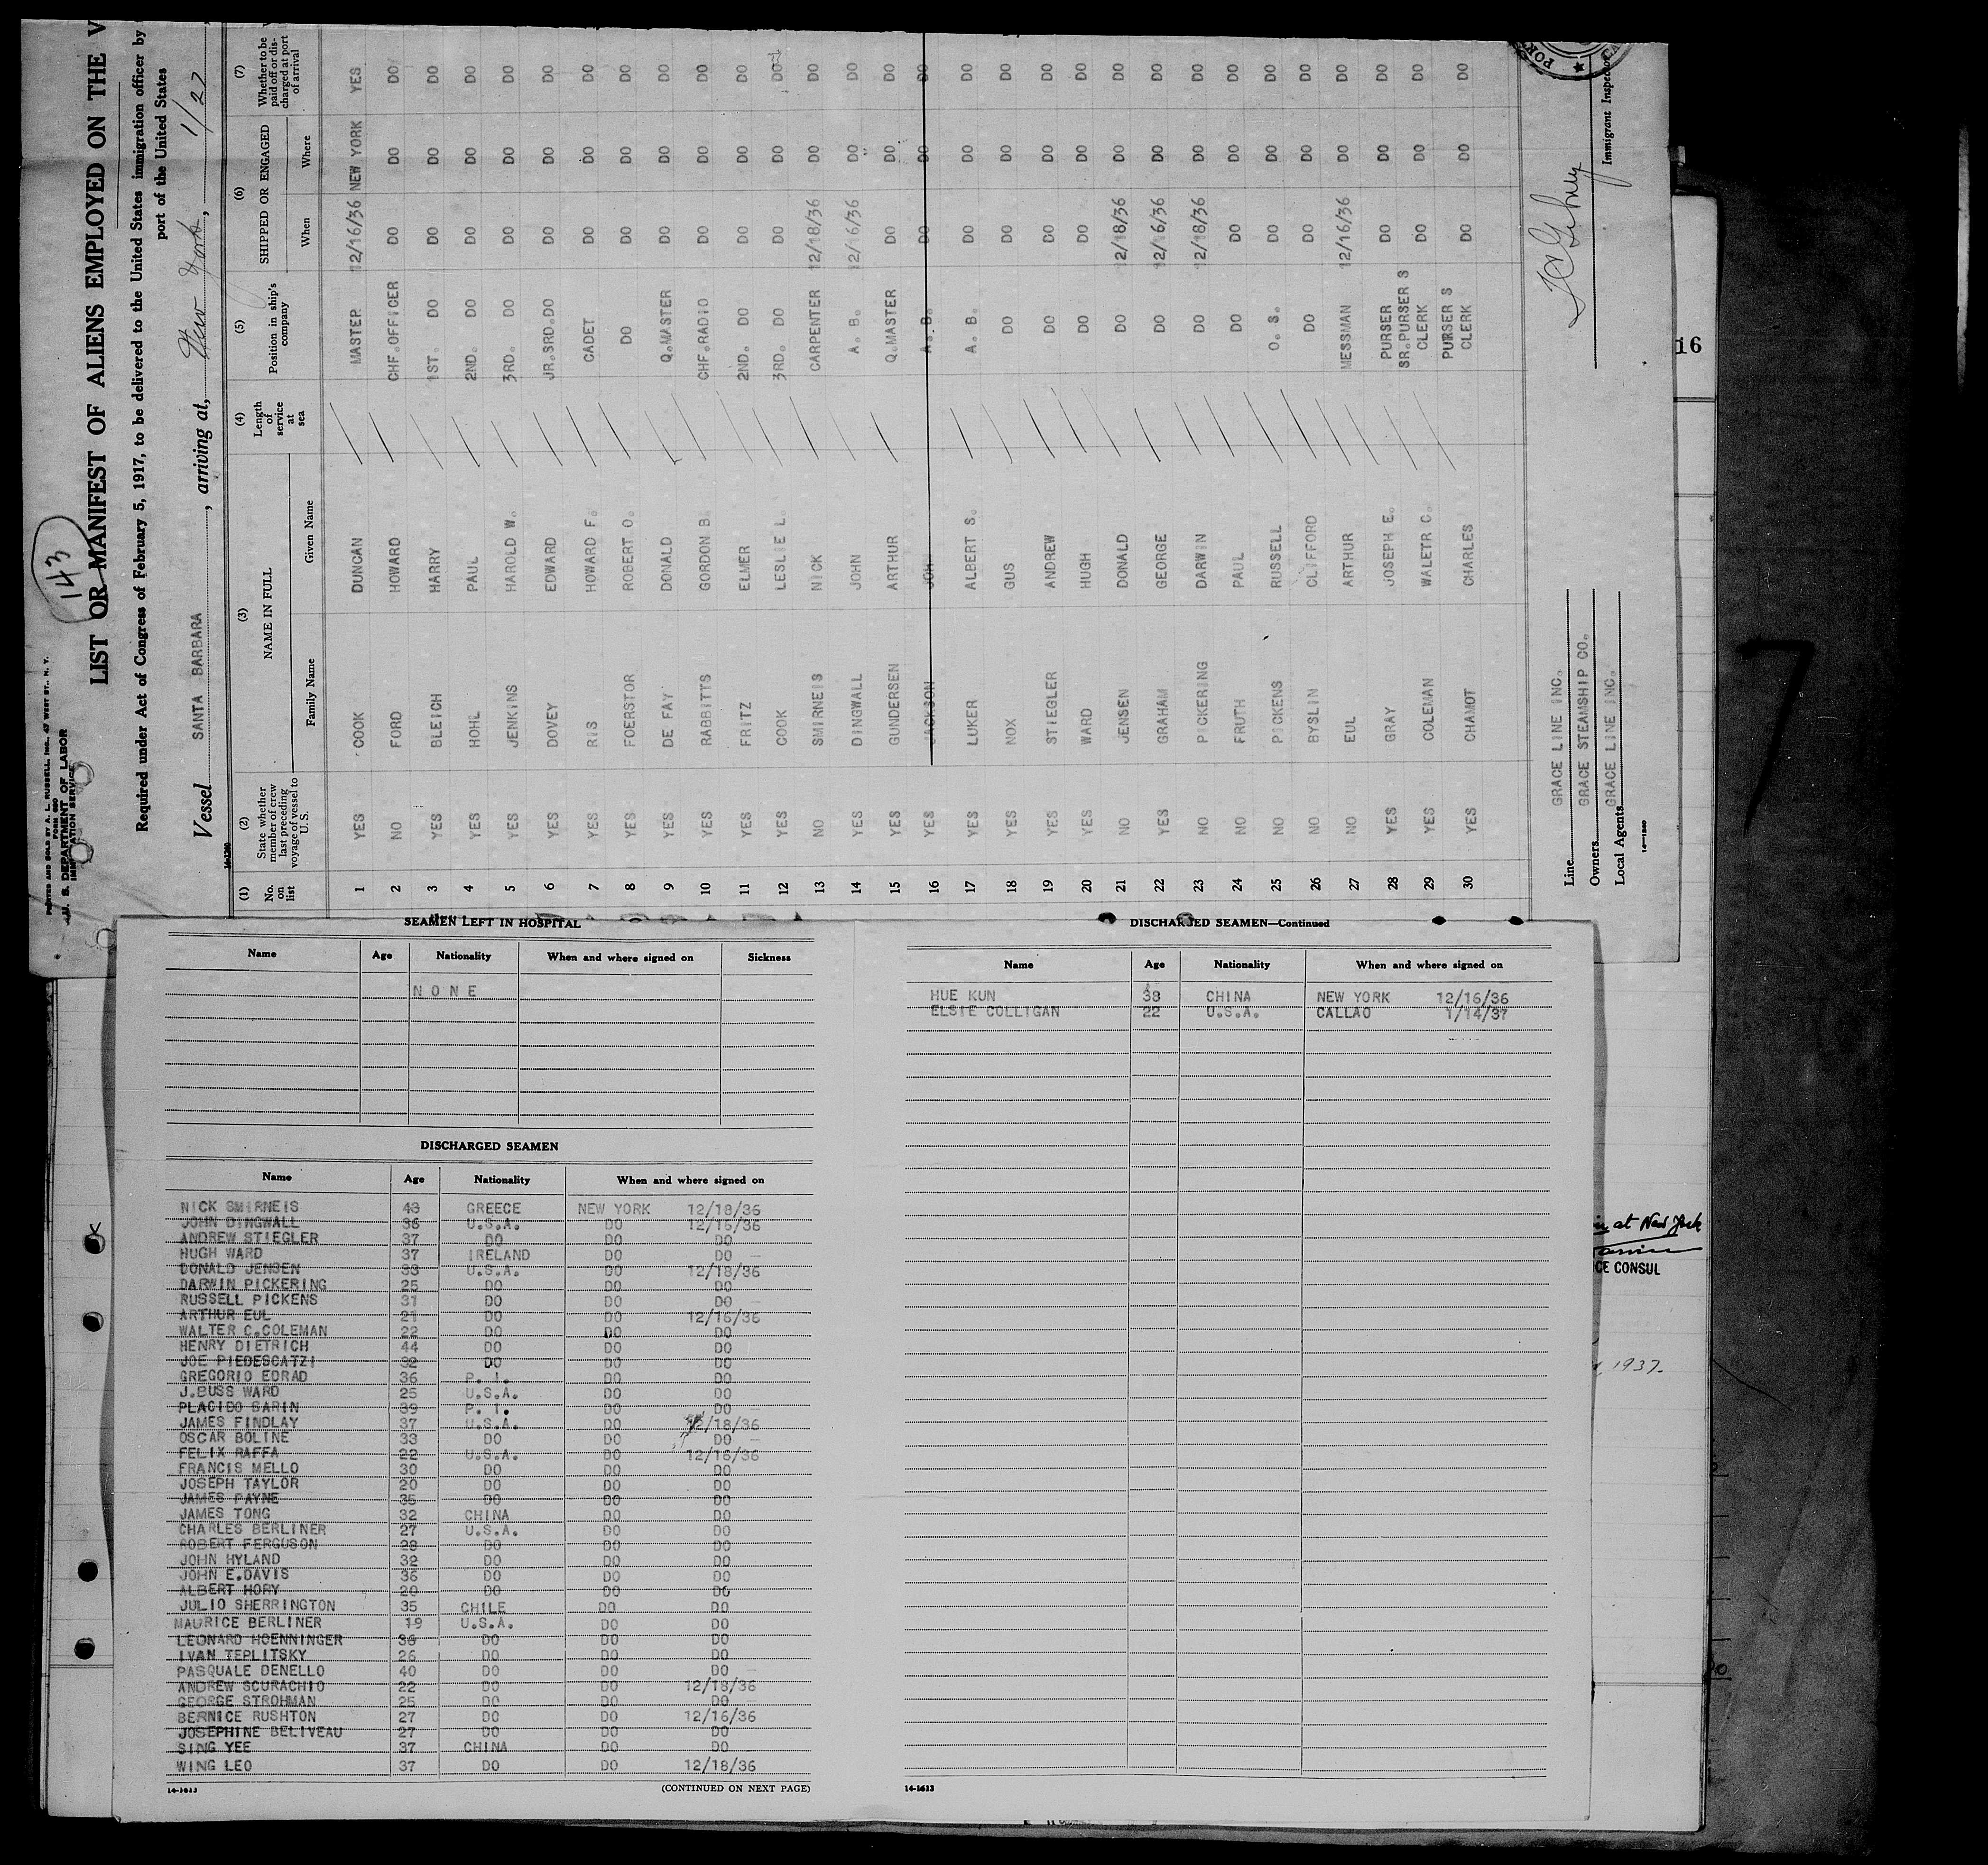 143
PRINTED AND SOLD BY A. L. RUSSELL, INC., 47 WEST ST., N. Y.
U. S. DEPARTMENT OF LABOR
IMMIGRATION SERVICE
LIST OR MANIFEST OF ALIENS EMPLOYED ON THE V
Required under Act of Congress of February 5, 1917, to be delivered to the United States immigration officer by
port of the United States
Vessel SANTA BARBARA, arriving at, New York, 1/27
(1) No. on list (2) State whether member of crew last preceding voyage of vessel to U.S. (3) NAME IN FULL Family Name Given Name (4) Length of service at sea (5) Position in ship's company (6) SHIPPED OR ENGAGED When Where (7) Whether to be paid off or discharged at port of arrival
1 YES COOK DUNCAN MASTER 12/16/36 NEW YORK YES
2 NO FORD HOWARD CHF.OFFICER DO DO DO
3 YES BLEICH HARRY 1ST. DO DO DO DO
4 YES HOHL PAUL 2ND. DO DO DO DO
5 YES JENKINS HAROLD W. 3RD. DO DO DO DO
6 YES DOVEY EDWARD JR.3RD.DO DO DO DO
7 YES RIS HOWARD F. CADET DO DO DO
8 YES FOERSTOR ROBERT O. DO DO DO DO
9 YES DE FAY DONALD Q.MASTER DO DO DO
10 YES RABBITTS GORDON B. CHF.RADIO DO DO DO
11 YES FRITZ ELMER 2ND. DO DO DO DO
12 YES COOK LESLIE L. 3RD. DO DO DO DO
13 NO SMIRNEIS NICK CARPENTER 12/18/36 DO DO
14 YES DINGWALL JOHN A. B. 12/16/36 DO DO
15 YES GUNDERSEN ARTHUR Q.MASTER DO DO DO
16 YES JACKSON JOHN A. B. DO DO DO
17 YES LUKER ALBERT S. A. B. DO DO DO
18 YES NOX GUS DO DO DO DO
19 YES STIEGLER ANDREW DO DO DO DO
20 YES WARD HUGH DO DO DO DO
21 NO JENSEN DONALD DO 12/18/36 DO DO
22 YES GRAHAM GEORGE DO 12/16/36 DO DO
23 NO PICKERING DARWIN DO 12/18/36 DO DO
24 NO FRUTH PAUL DO DO DO DO
25 NO PICKENS RUSSELL O. S. DO DO DO
26 NO BYSLIN CLIFFORD DO DO DO DO
27 NO EUL ARTHUR MESSMAN 12/16/36 DO DO
28 YES GRAY JOSEPH E. PURSER DO DO DO
29 YES COLEMAN WALETR C. SR.PURSER S CLERK DO DO DO
30 YES CHAMOT CHARLES PURSER S CLERK DO DO DO
Line GRACE LINE INC.
Owners GRACE STEAMSHIP CO.
Local Agents GRACE LINE INC.
Immigrant Inspector
16
7
at New York
CE CONSUL
1937.
SEAMEN LEFT IN HOSPITAL
Name Age Nationality When and where signed on Sickness
NONE
DISCHARGED SEAMEN
Name Age Nationality When and where signed on
NICK SMIRNEIS 43 GREECE NEW YORK 12/18/36
JOHN DINGWALL 36 U.S.A. DO 12/16/36
ANDREW STIEGLER 37 DO DO DO
HUGH WARD 37 IRELAND DO DO
DONALD JENSEN 33 U.S.A. DO 12/18/36
DARWIN PICKERING 25 DO DO DO
RUSSELL PICKENS 31 DO DO DO
ARTHUR EUL 21 DO DO 12/16/36
WALTER C.COLEMAN 22 DO DO DO
HENRY DIETRICH 44 DO DO DO
JOE PIEDESCATZI 32 DO DO DO
GREGORIO EDRAD 36 P. I. DO DO
J.BUSS WARD 25 U.S.A. DO DO
PLACIDO SARIN 39 P. I. DO DO
JAMES FINDLAY 37 U.S.A. DO 12/18/36
OSCAR BOLINE 33 DO DO DO
FELIX RAFFA 22 U.S.A. DO 12/16/36
FRANCIS MELLO 30 DO DO DO
JOSEPH TAYLOR 20 DO DO DO
JAMES PAYNE 35 DO DO DO
JAMES TONG 32 CHINA DO DO
CHARLES BERLINER 27 U.S.A. DO DO
ROBERT FERGUSON 28 DO DO DO
JOHN HYLAND 32 DO DO DO
JOHN E.DAVIS 36 DO DO DO
ALBERT HORY 20 DO DO DO
JULIO SHERRINGTON 35 CHILE DO DO
MAURICE BERLINER 19 U.S.A. DO DO
LEONARD HOENNINGER 36 DO DO DO
IVAN TEPLITSKY 26 DO DO DO
PASQUALE DENELLO 40 DO DO DO
ANDREW SCURACHIO 22 DO DO 12/18/36
GEORGE STROHMAN 25 DO DO DO
BERNICE RUSHTON 27 DO DO 12/16/36
JOSEPHINE BELIVEAU 27 DO DO DO
SING YEE 37 CHINA DO DO
WING LEO 37 DO DO 12/18/36
14-1613 (CONTINUED ON NEXT PAGE)
DISCHARGED SEAMEN—Continued
Name Age Nationality When and where signed on
HUE KUN 38 CHINA NEW YORK 12/16/36
ELSIE COLLIGAN 22 U.S.A. CALLAO 1/14/37
14-1613